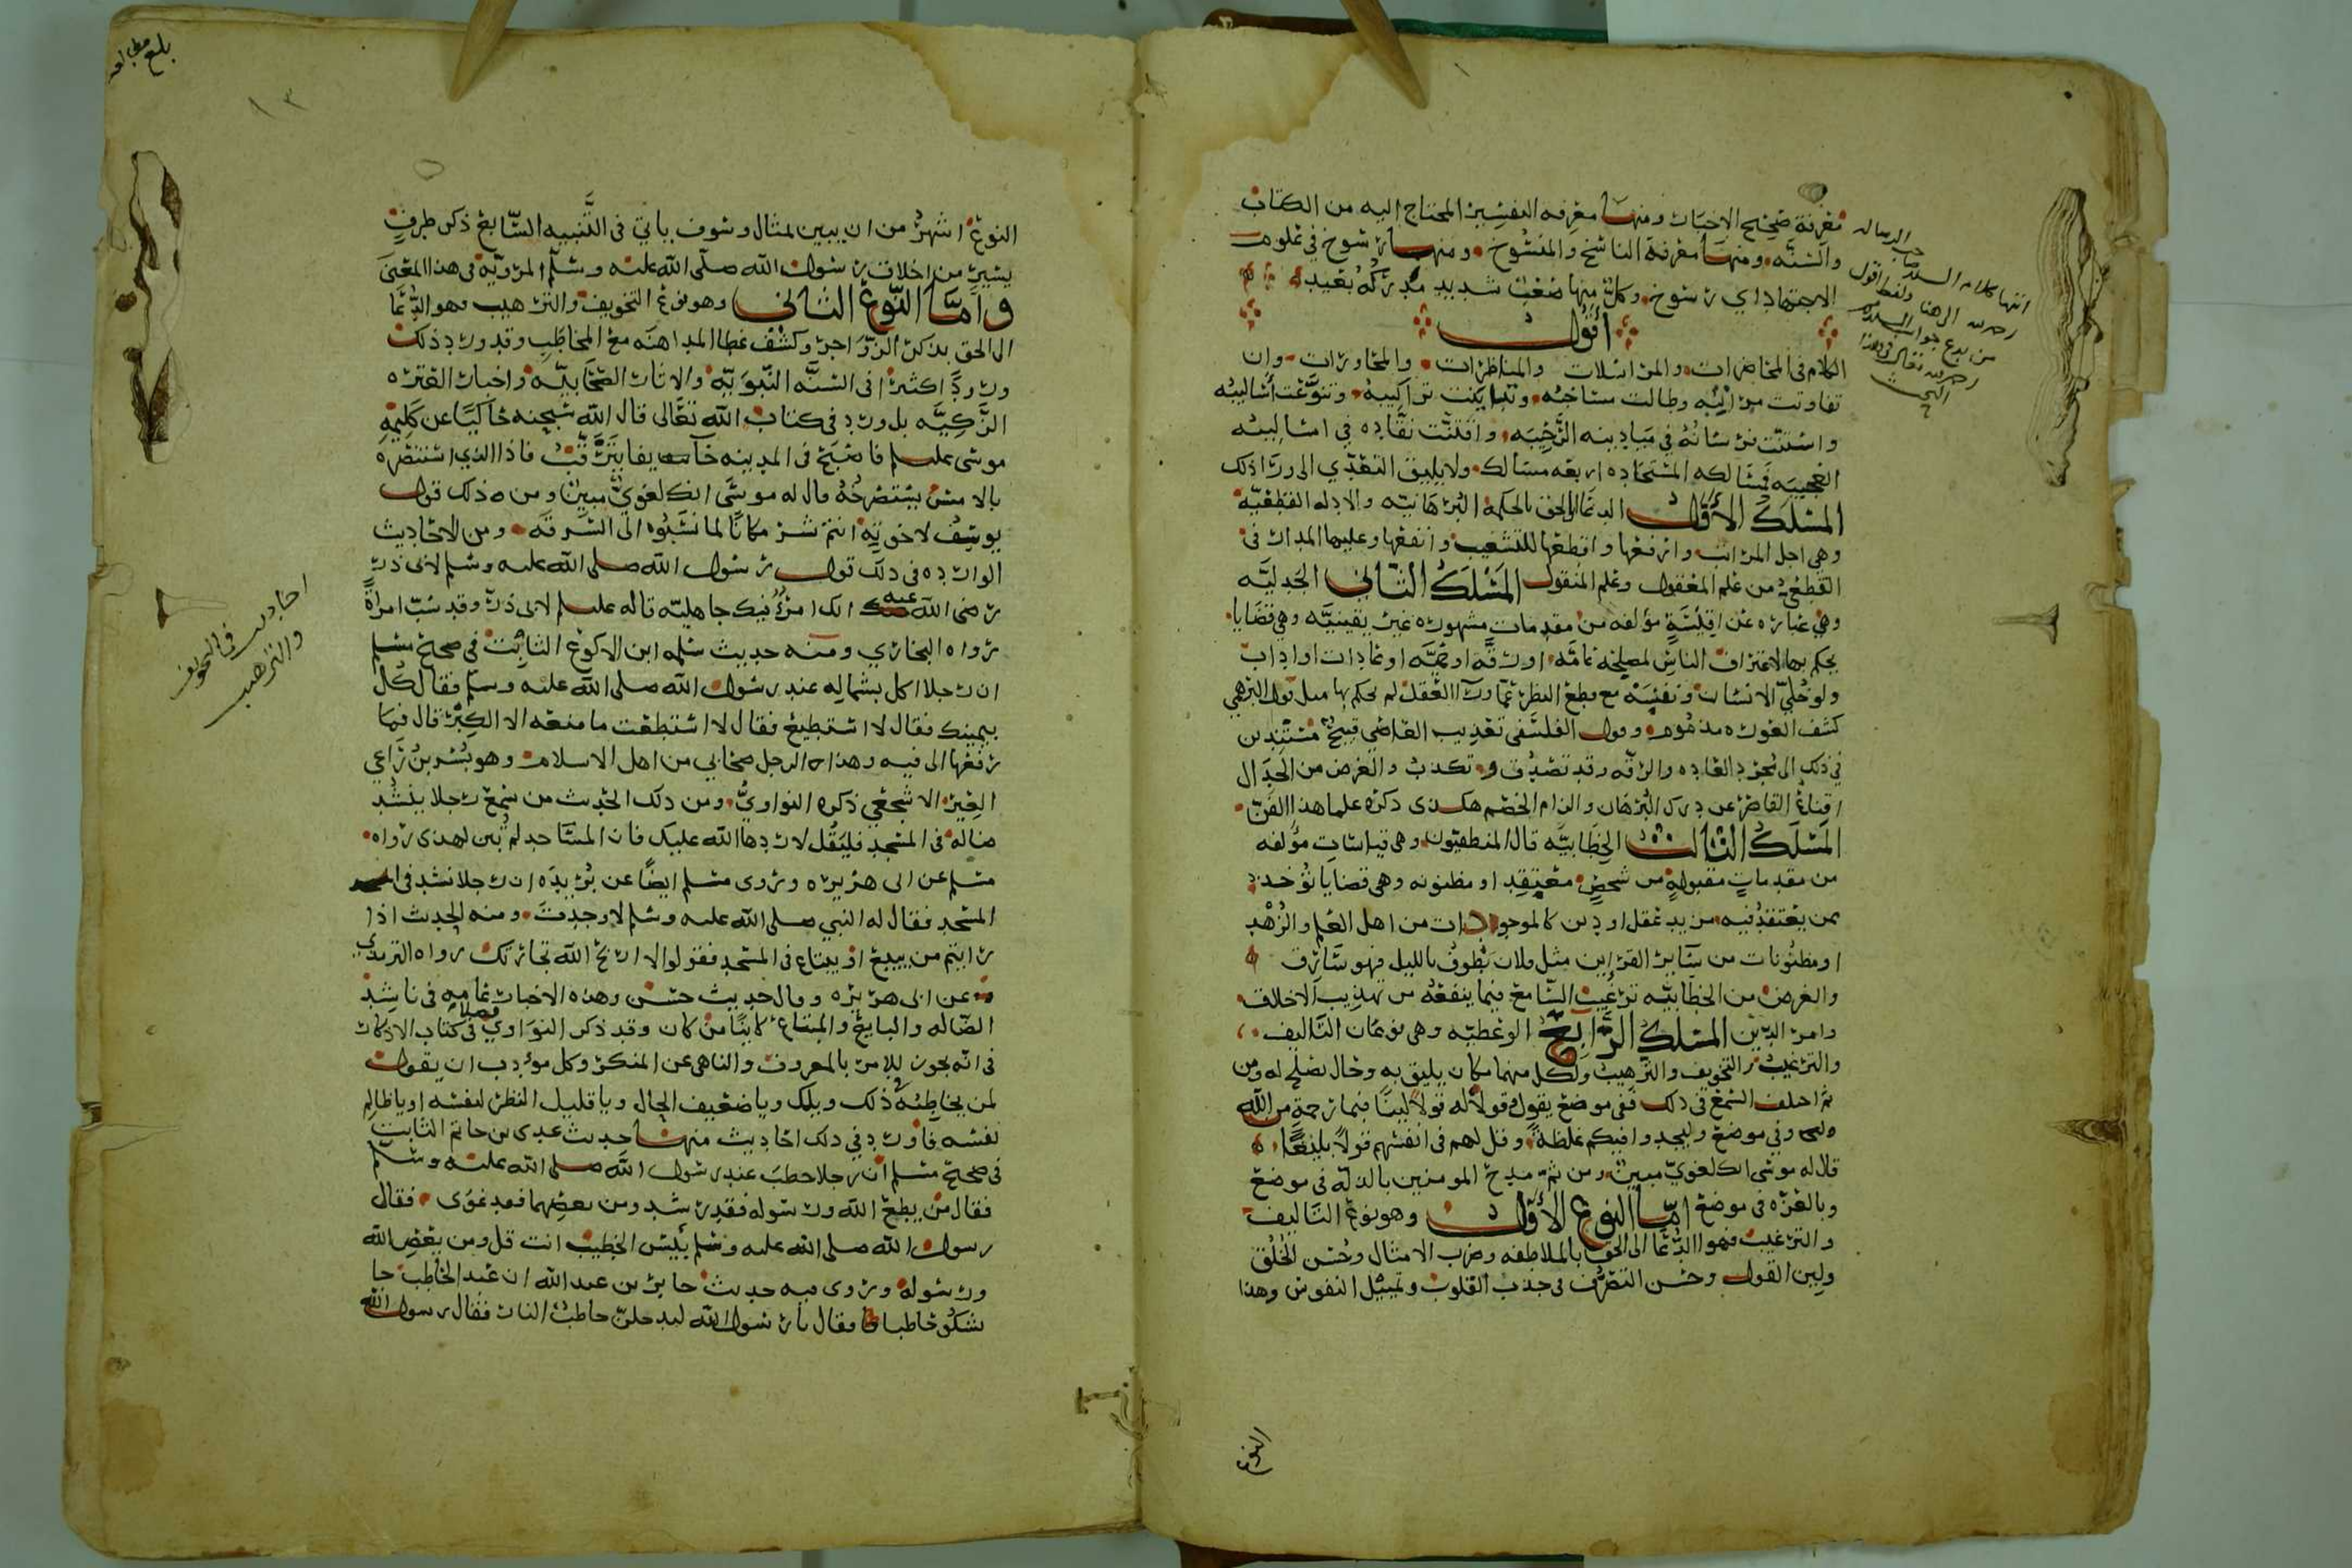 معرفة صحيح الاخبار ومنها معرفه التفسير المحتاج اليه من الكتاب
والسنه ومنها معرفة الناسخ والمنسوخ ومنها رسوخ في علوم
الاجتهاد اي رسوخ وكل منها صعب شديد مدركه بعيد
اقول
الكلام في المحاضرات والمراسلات والمناظرات والمحاورات وان
تفاوتت مراتبه وطالت مساحته وتباينت تراكيبه وتنوعت أساليبه
واستنت فرسانه في ميادينه الرحيبه وافتنت نقاده في اساليبه
العجيبه فمسالكه المستجاده اربعه مسالك ولا يليق التعدي الى ورا ذلك
المسلك الاول الدعا الى الحق بالحكمة البرهانيه والادله القطعيه
وهي اجل المراتب وارفعها واقطعها للتشغيب وانفعها وعليها المدار في
القطعي من علم المعقول وعلم المنقول المسلك الثاني الجدليه
وهي عباره عن اقيسة مؤلفه من مقدمات مشهوره غير يقينيه وهي قضايا
يحكم بها لاعتراف الناس لمصلحه عامه او رقه او حميه او عادات او اداب
ولو خلي الانسان ونفسه مع قطع النظر عما ورا العقل لم يحكم بها مثل قول البرهمي
كشف العوره مذموم وقول الفلسفي تعذيب العاصي قبيح مستندين
في ذلك الى مجرد العاده والرقه وقد تصدق وتكذب والغرض من الجدال
اقناع القاصر عن درك البرهان والزام الخصم هكذى ذكره علما هذا الفن
المسلك الثالث الخطابيه قال المنطقيون وهي قياسات مؤلفه
من مقدمات مقبولة من شخص معتقد او مظنونه وهي قضايا تؤخذ
ممن يعتقد فيه مزيد عقل او دين كالموجودات من اهل العلم والزهد
او مظنونات من ساير القراين مثل فلان يطوف بالليل فهو سارق
والغرض من الخطابيه ترغيب السامع فيما ينفعه من تهذيب الاخلاق
وامر الدين المسلك الرابع الوعظيه وهي نوعان التاليف
والترغيب والتخويف والترهيب ولكل منهما مكان يليق به وحال يصلح له ومن
ثم اختلف السمع في ذلك ففي موضع يقول وقولا له قولا لينا فبما رحمة من الله
وفي موضع وليجدوا فيكم غلظة وقل لهم في انفسهم قولا بليغا
قال له موسى انك لغوي مبين ومن ثم مدح المومنين بالذله في موضع
وبالعزه في موضع اما النوع الاول وهو نوع التاليف
والترغيب فهو الدعا الى الحق بالملاطفه وضرب الامثال وحسن الخلق
ولين القول وحسن التصرف في جذب القلوب وتمييل النفوس وهذا
النوع
النوع اشهر من ان يبين لمثال وسوف ياتي في التنبيه السابع ذكر طرف
يسير من اخلاق رسول الله صلى الله عليه وسلم المرويه في هذا المعنى
واما النوع الثاني وهو نوع التخويف والترهيب وهو الدعا
الى الحق بذكر الزواجر وكشف غطا المداهنه مع المخاطب وقد ورد ذلك
ورودا كثيرا في السنه النبويه والاثار الصحابيه واخبار العتره
الزكيه بل ورد في كتاب الله تعالى قال الله سبحنه حاكيا عن كليمه
موسى عليلم فاصبح في المدينه خايفا يترقب فاذا الذي استنصره
بالامس يستصرخه قال له موسى انك لغوي مبين ومن ذلك قول
يوسف لاخوته انتم شر مكانا لما نسبوه الى السرقه ومن الاحاديث
الوارده في ذلك قول رسول الله صلى الله عليه وسلم لابي ذر
رضي الله عنه انك امرؤ فيك جاهليه قاله عليلم لابي ذر وقد سب امراة
رواه البخاري ومنه حديث سلمه ابن الاكوع الثابت في صحيح مسلم
ان رجلا اكل بشماله عند رسول الله صلى الله عليه وسلم فقال كل
بيمينك فقال لا استطيع فقال لا استطعت ما منعه الا الكبر قال فما
رفعها الى فيه وهذا الرجل صحابي من اهل الاسلام وهو بسر بن راعي
العير الاشجعي ذكره النواوي ومن ذلك الحديث من سمع رجلا ينشد
ضالة في المسجد فليقل لا ردها الله عليك فان المساجد لم تبن لهذى رواه
مسلم عن ابي هريره وروى مسلم ايضا عن بريده ان رجلا نشد في
المسجد فقال له النبي صلى الله عليه وسلم لا وجدت ومنه الحديث اذا
رايتم من يبيع او يبتاع في المسجد فقولوا لا اربح الله تجارتك رواه الترمذي
عن ابي هريره وقال حديث حسن وهذه الاخبار عامه في ناشد
الضاله والبايع والمبتاع كاينا من كان وقد ذكر النواوي فصلا في كتاب الاذكار
في انه يجوز للامر بالمعروف والناهي عن المنكر وكل مودب ان يقول
لمن يخاطبه في ذلك ويلك ويا ضعيف الحال ويا قليل النظر لنفسه او يا ظالم
نفسه واورد في ذلك احاديث منها حديث عدي بن حاتم الثابت
في صحيح مسلم ان رجلا خطب عند رسول الله صلى الله عليه وسلم
فقال من يطع الله ورسوله فقد رشد ومن يعصهما فقد غوى فقال
رسول الله صلى الله عليه وسلم بئس الخطيب انت قل ومن يعص الله
ورسوله وروى فيه حديث جابر بن عبد الله ان عبد الحاطب جا
يشكو حاطبا فقال يا رسول الله ليدخلن حاطب النار فقال رسول الله
احاديث في التخويف
والترهيب
بلغ مطالعه